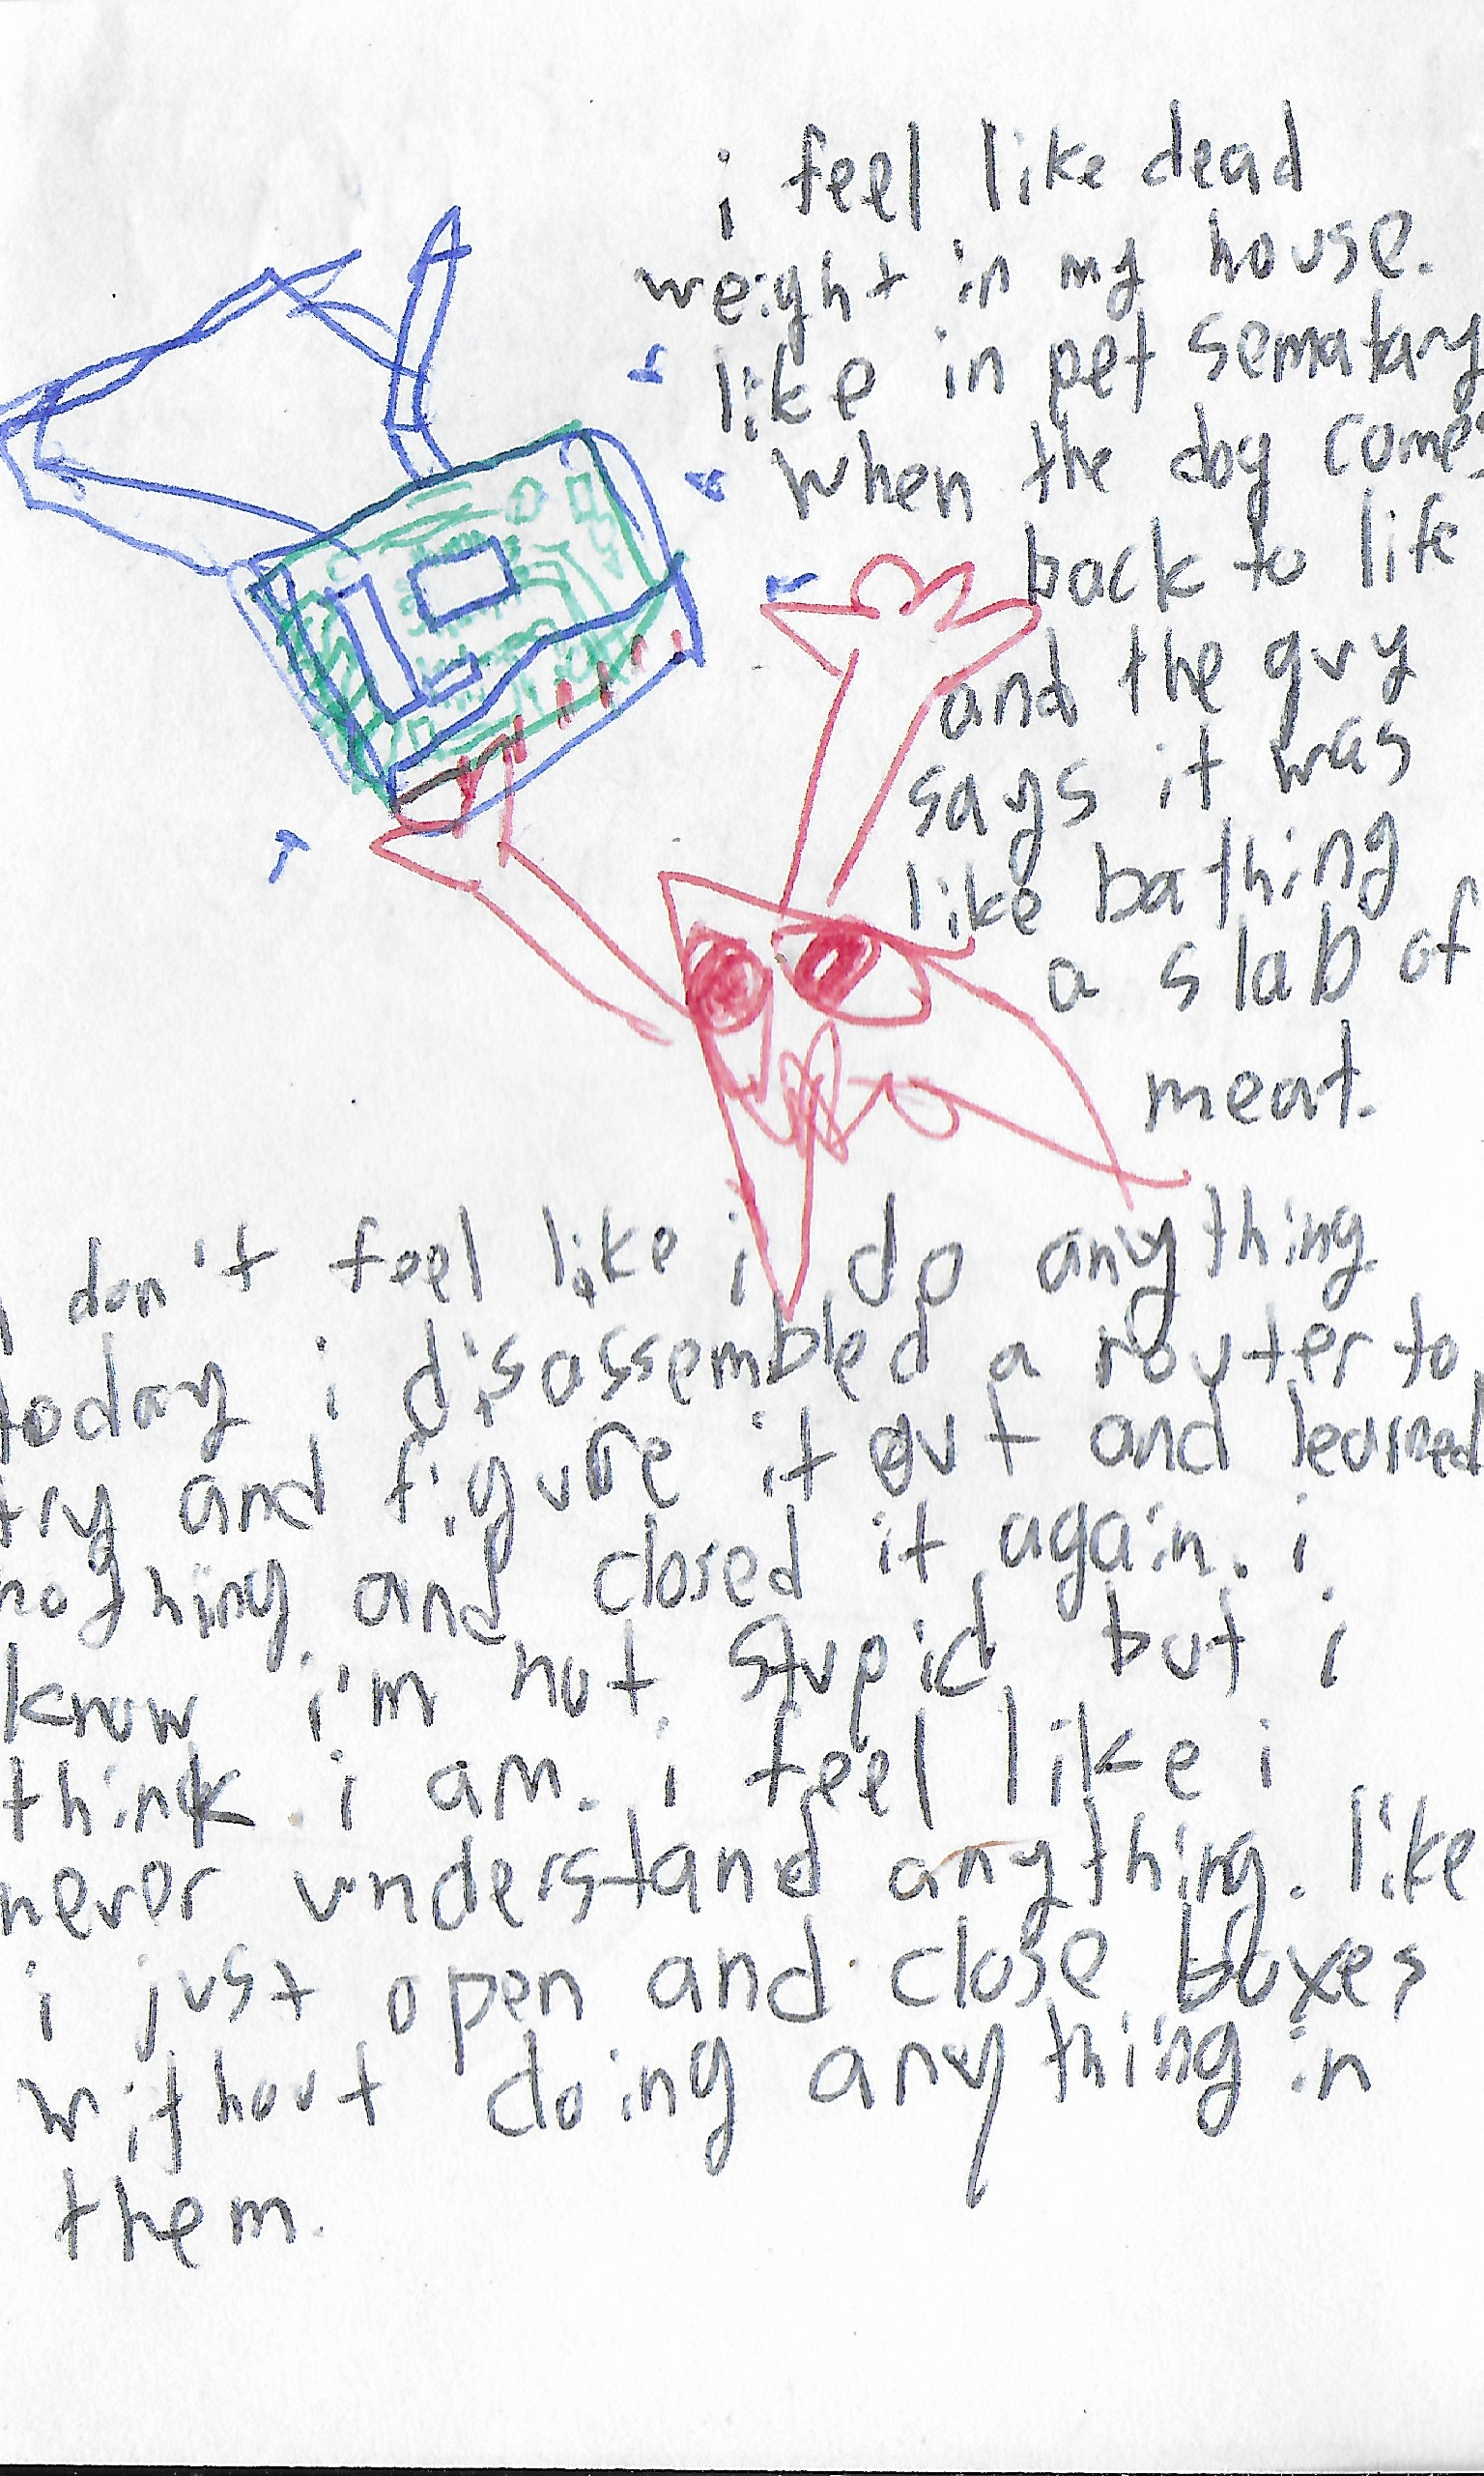 i feel like dead
weight in my house.
like in pet sematary
when the dog comes
back to life
and the guy
says it was
like bathing
a slab of
meat.
i don't feel like i do anything
today i disassembled a router to
try and figure it out and learned
nothing and closed it again. i
know i'm not stupid but i
think i am. i feel like i
never understand anything. like
i just open and close boxes
without doing anything in
them.